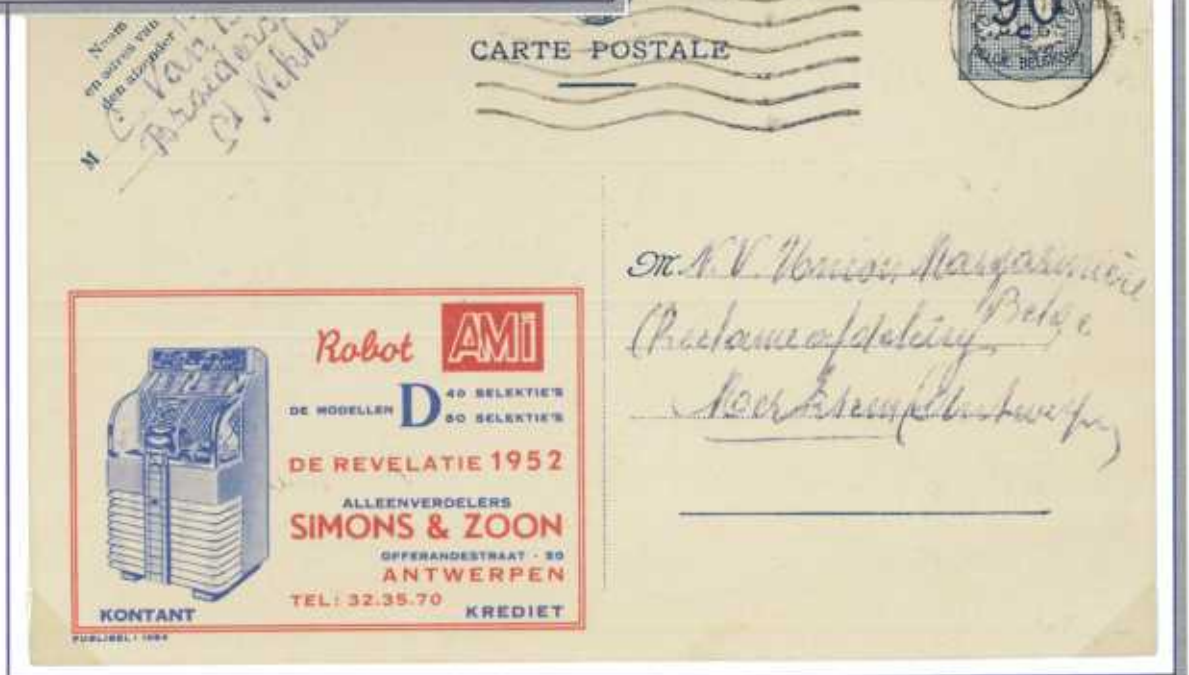 Naam
en adres van
den afzender
M C. Van
St Niklaas
CARTE POSTALE
90
c
BELGIE BELGIQUE
M. N. V. Union Margarinière
Belge
(Reclameafdeling
Merksem (Antwerpen)
Robot AMi
DE MODELLEN D 40 SELEKTIE'S
80 SELEKTIE'S
DE REVELATIE 1952
ALLEENVERDELERS
SIMONS & ZOON
OFFERANDESTRAAT - 20
ANTWERPEN
TEL: 32.35.70
KONTANT
KREDIET
PUBLIBEL: